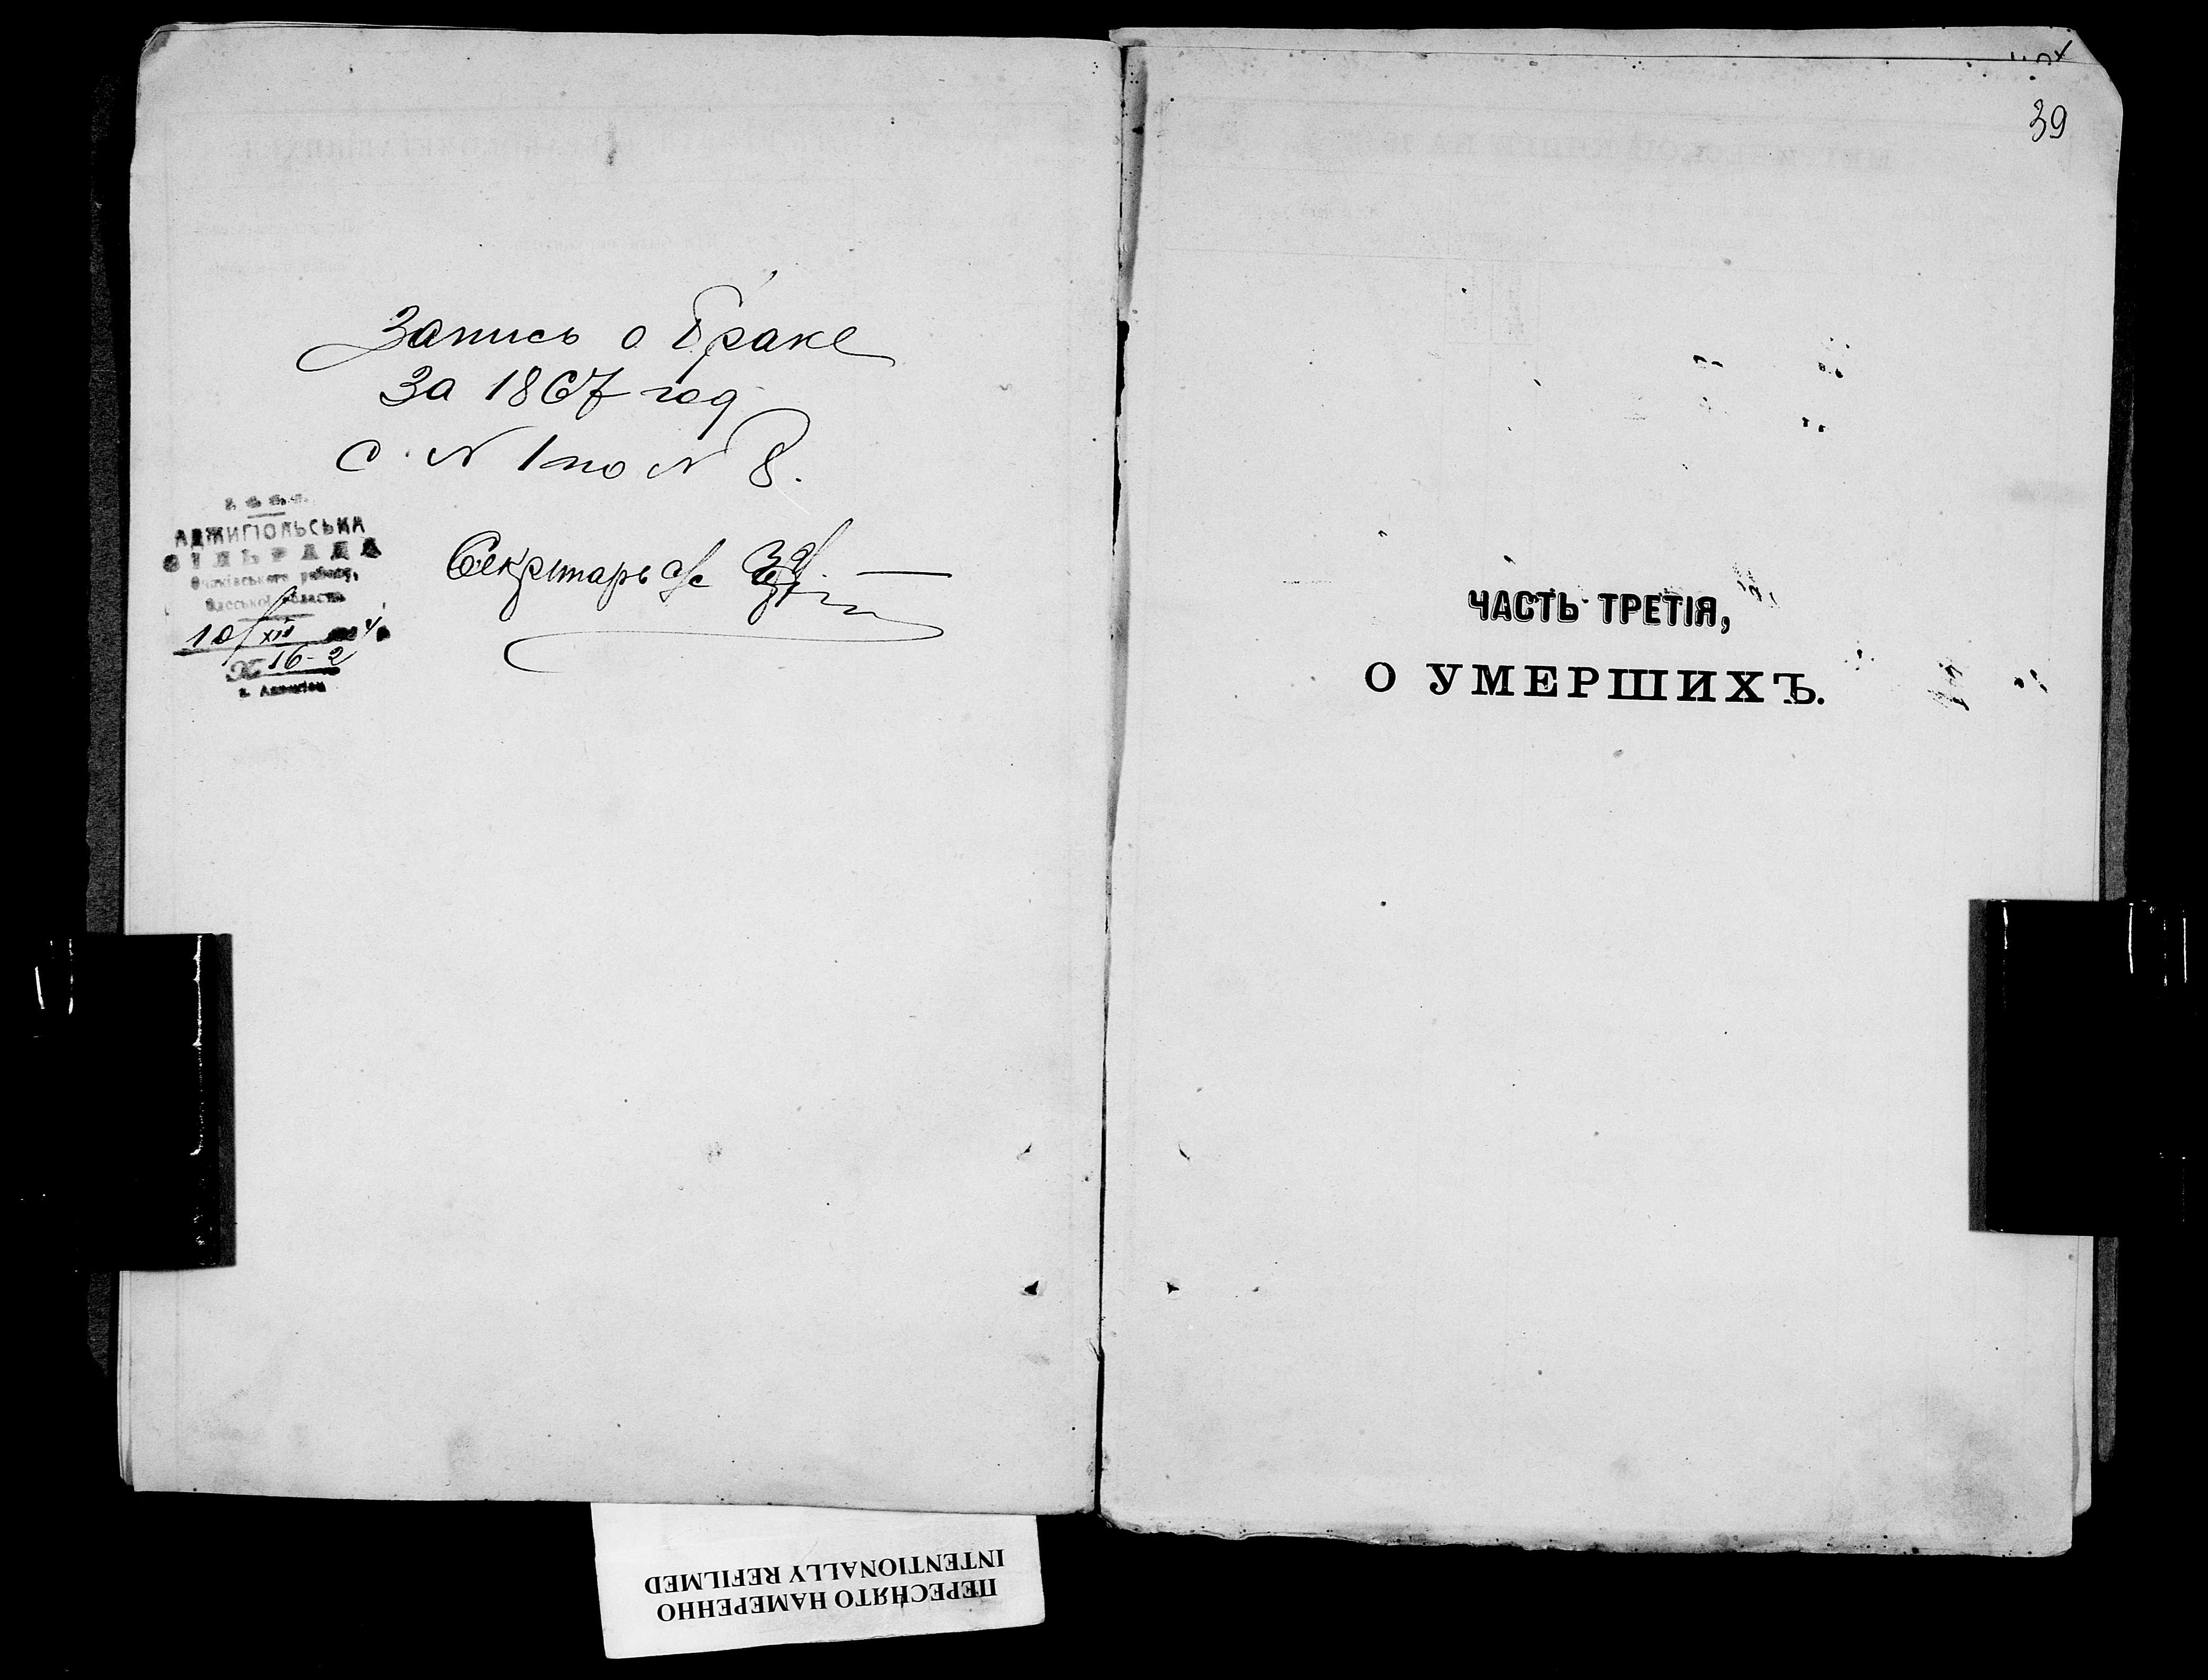 Запись о браке
За 1867 год
с N 1 по N 8.
АДЖИГІОЛЬСЬКА
СІЛЬРАДА
Очаківського району,
Одеської області
10/XII 4
№ 16-2
Секретарь с/с
39
ЧАСТЬ ТРЕТІЯ,
О УМЕРШИХЪ.
ПЕРЕСНЯТО НАМЕРЕННО
INTENTIONALLY REFILMED